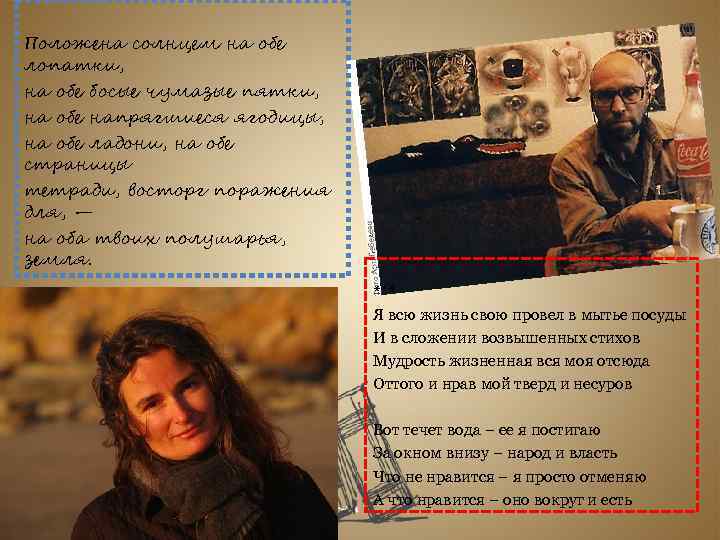 Положена солнцем на обе
лопатки,
на обе босые чумазые пятки,
на обе напрягшиеся ягодицы,
на обе ладони, на обе
страницы
тетради, восторг поражения
для, —
на оба твоих полушарья,
земля.
Coca-Cola
Я всю жизнь свою провел в мытье посуды
И в сложении возвышенных стихов
Мудрость жизненная вся моя отсюда
Оттого и нрав мой тверд и несуров
Вот течет вода – ее я постигаю
За окном внизу – народ и власть
Что не нравится – я просто отменяю
А что нравится – оно вокруг и есть